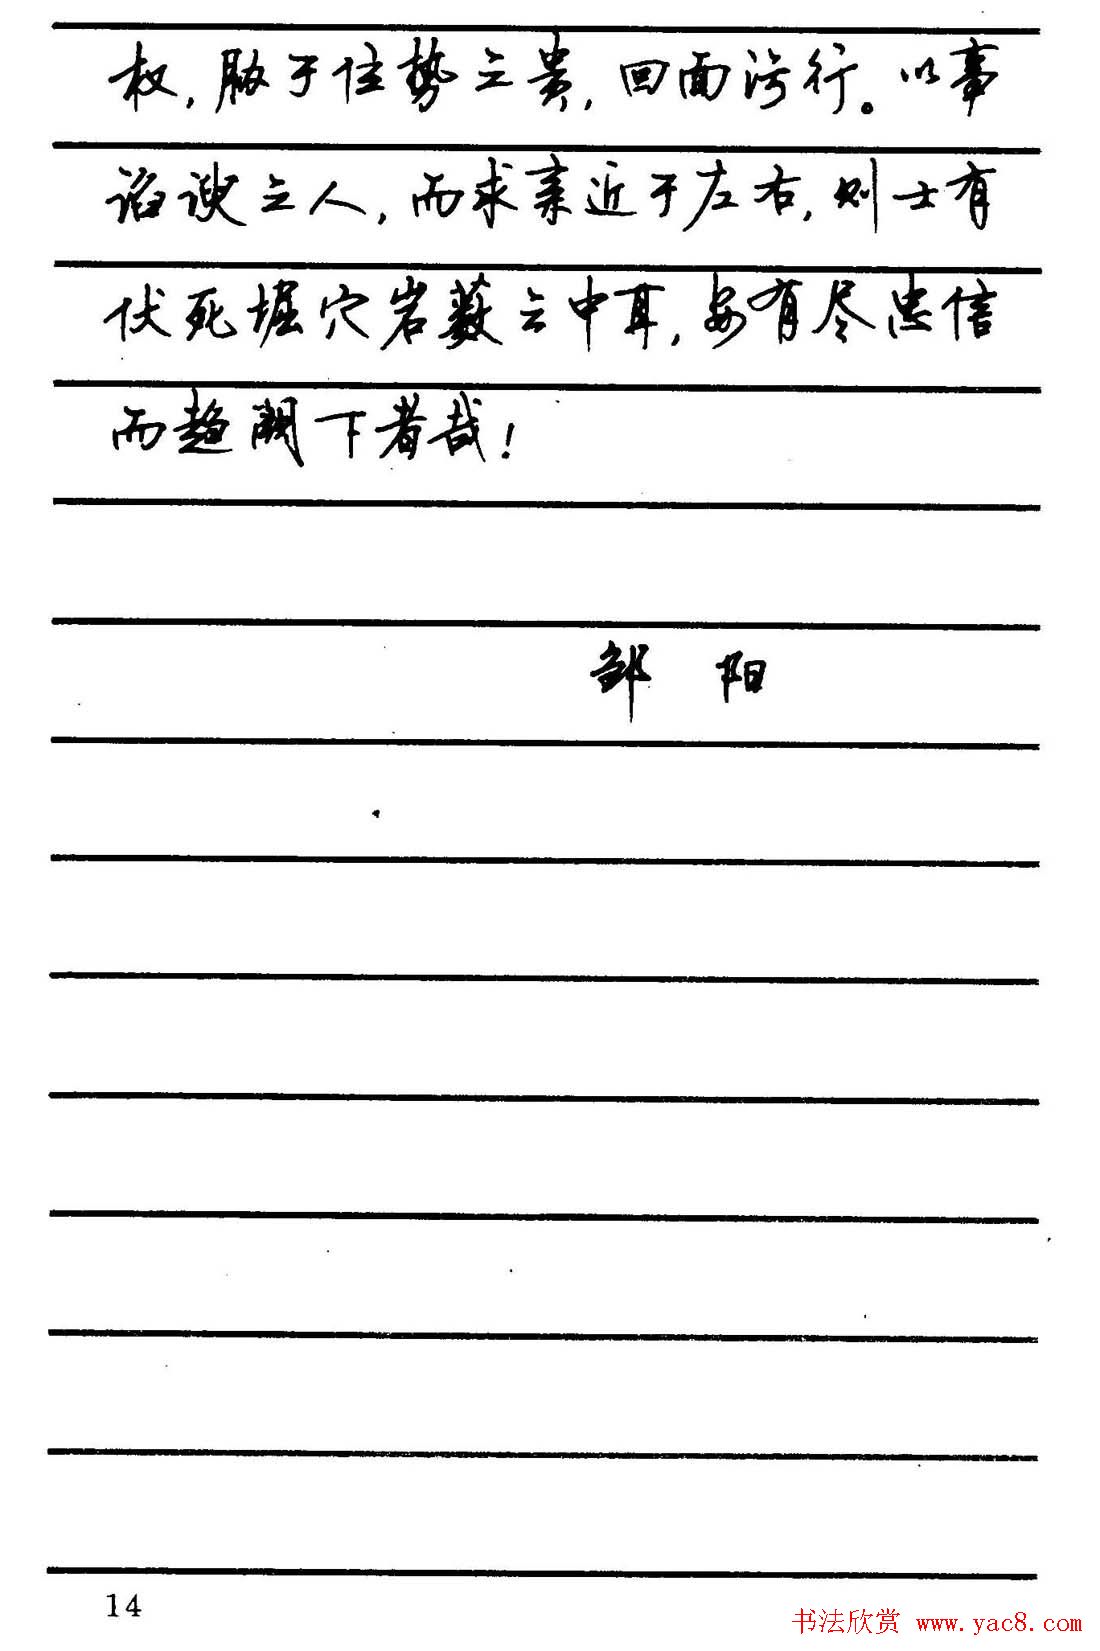 权，胁于住势之贵，回面污行。以事
谄谀之人，而求亲近于左右，则士有
伏死堀穴岩薮之中耳，安有尽忠信
而趋阙下者哉！
邹 阳
14
书法欣赏 www.yac8.com